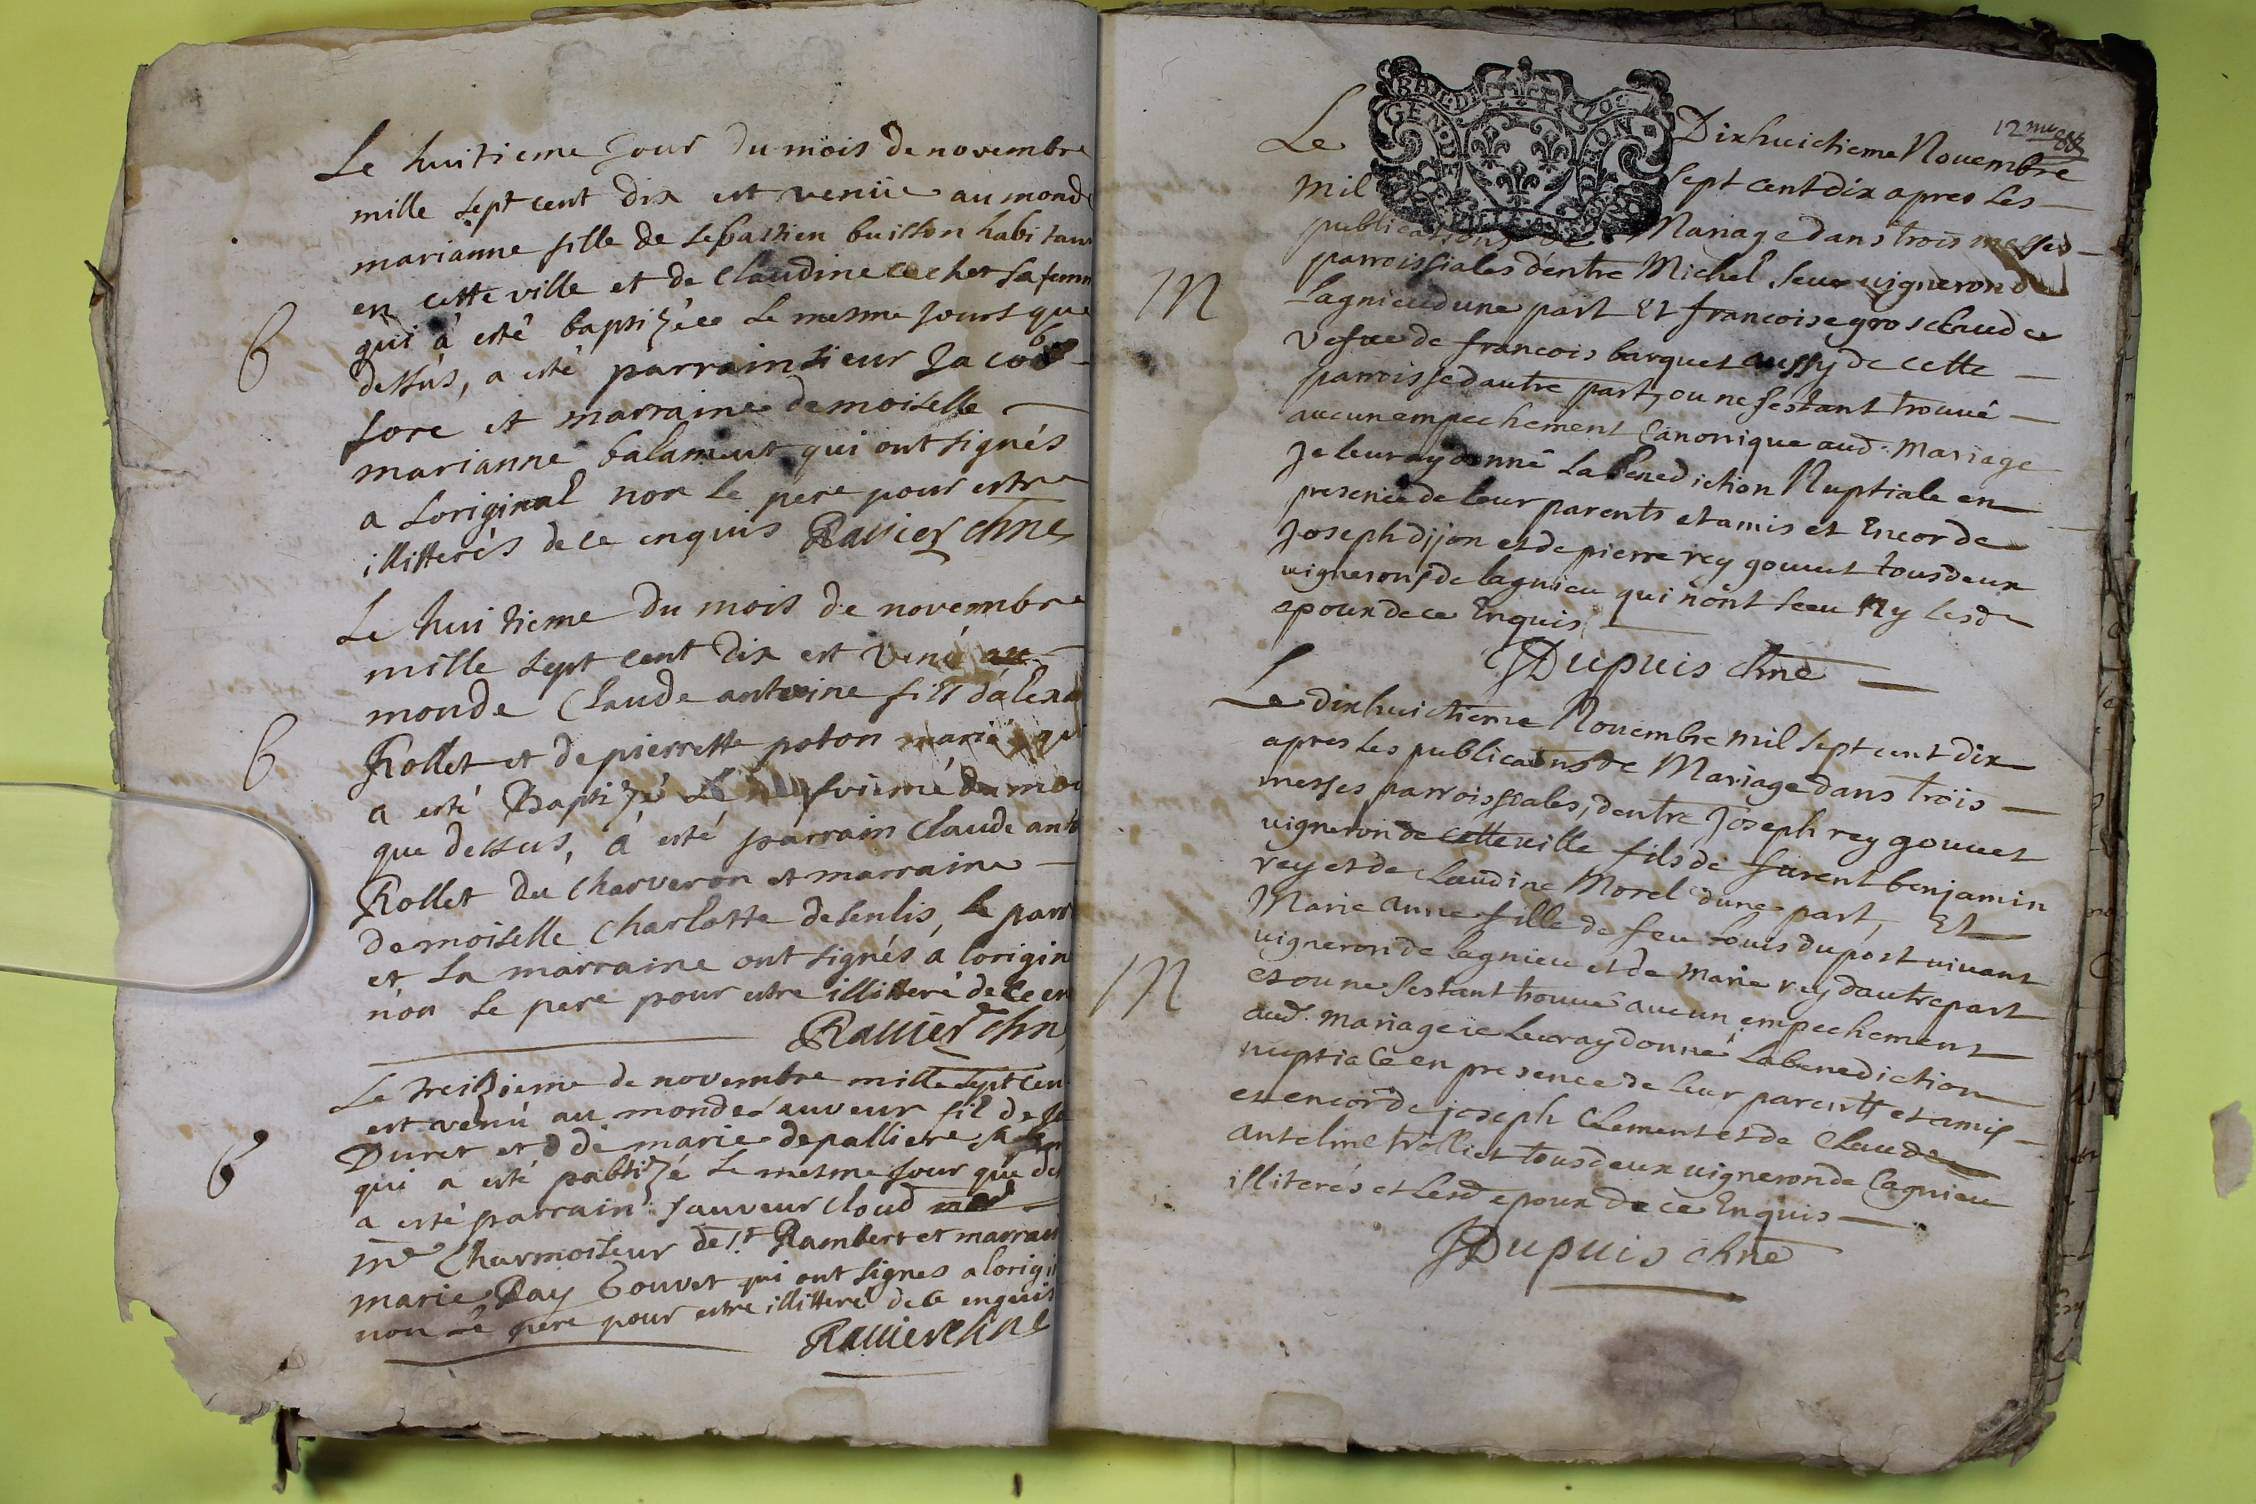 Le huitieme Jour du mois de novembre
mille sept cent dix est venüe au monde
marianne fille de sebastien buisson habitant
en cette ville et de Claudine cochet sa femme
B
qui à esté baptizéee le mesme Jours que
dessus, a esté parrain sieur Jacob
sore et marraine demoiselle
marianne balameut qui ont signés
a Loriginal non le pere pour estre
illitterés de ce enquis Ravier chne
Le huitieme du mois de novembre
mille sept cent dix est venú au
monde Claude antoine fils dalexa
B
Rollet et de pierrette poton mariés qui
a esté Baptizé Le du moi
que dessus, á esté parrain Claude anto
Rollet du Charveron et marraine
demoiselle Charlotte de senlis, le parr
et la marraine ont signés á lorigin
non le pere pour estre illitteré de ce en
Ravier chne
Le treiziéme de novembre mille sept cen
est venú au monde sauveur fil de Je
Duret et d de marie depalliere sa fem
B
qui a esté pabtizé le mesme Jour que des
a esté parrain sauveur cloud
me Charmoiseur de St Rambert et marrain
marie Ray Gouvet qui ont signes a lorigi
non Le pere pour estre illitteré de ce enquis
Ravier chne
12 me
GEN. DE DIJON
Le Dixhuictieme Nouembre
mil sept cent dix apres les
publications de Mariage dans trois messes
parroissiales d'entre Michel seue vigneron de
M
Lagnieu d'une part Et francoise grosclaude
vefue de francois barquet aussy de cette
parroisse dautre part, ou ne sestant trouué
aucun empechement Canonique aud. Mariage
Je leur ay donné La benediction Nuptiale en
presence de leur parents et amis et Encor de
Joseph dijon et de pierre rey gouuet tous deux
uignerons de lagnieu qui n'ont sceu Ny lesd
epoux de ce Enquis
Dupuis chne
Le dixhuictieme Nouembre mil sept cent dix
apres Les publicaons de Mariage dans trois
messes parroissiales, dentre Joseph rey gouuet
uigneron de cette ville fils de furent benjamin
rey et de Claudine Morel dune part, Et
Marie Anne fille de feu Louis duport uiuant
uigneron de lagnieu et de Marie rey dautre part
M
et ou ne sestant trouué aucun empechement
aud. Mariage ie leur ay donné La benediction
nuptiale en presence de leur parents et amis
et encor de joseph Clement et de Claude
Antelme trolliet tous deux uigneron de Lagnieu
illiterés et lesd epoux de ce Enquis
Dupuis chne